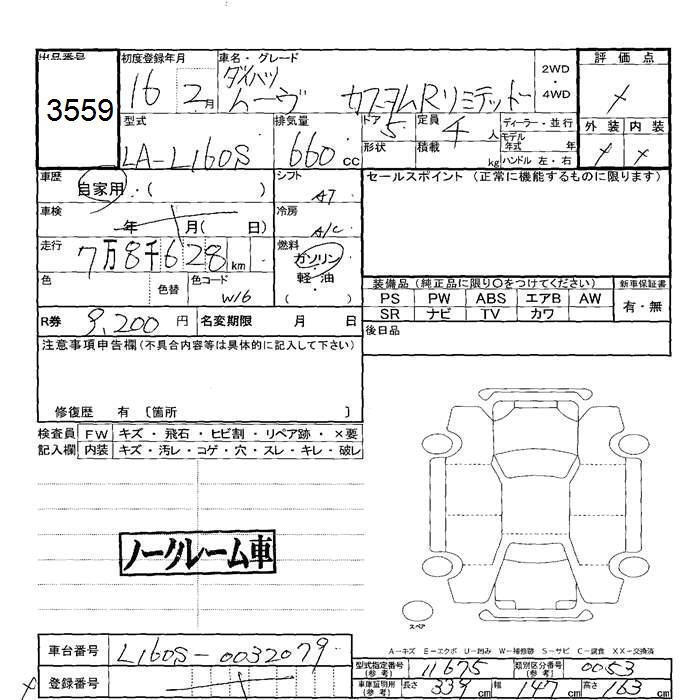 出品番号 初度登録年月 車名・グレード 2WD・4WD 評価点
3559 16 2月 ダイハツ ムーヴ カスタムRリミテッド
型式 排気量 ドア 定員 ディーラー・並行 外装 内装
LA-L160S 660cc 5 4人 モデル年式 年
形状 積載 kg ハンドル 左・右
車歴 シフト セールスポイント (正常に機能するものに限ります)
自家用・( ) AT
車検 年 月( 日) 冷房 A/C
走行 7万8千628km 燃料 ガソリン・軽・油・( )
色 色替 色コード W16
装備品 (純正品に限り○をつけてください) 新車保証書
PS PW ABS エアB AW 有・無
SR ナビ TV カワ
R券 9,200円 名変期限 月 日 後日品
注意事項申告欄(不具合内容等は具体的に記入して下さい)
修復歴 有 〔箇所 〕
検査員 FW キズ・飛石・ヒビ割・リペア跡・×要
記入欄 内装 キズ・汚レ・コゲ・穴・スレ・キレ・破レ
ノークレーム車
スペア
A-キズ E-エクボ U-凹み W-補修跡 S-サビ C-腐食 XX-交換済
車台番号 L160S-0032079
型式指定番号(参考) 11675 類別区分番号(参考) 0053
登録番号
車庫証明用(参考) 長さ 339cm 幅 147cm 高さ 163cm